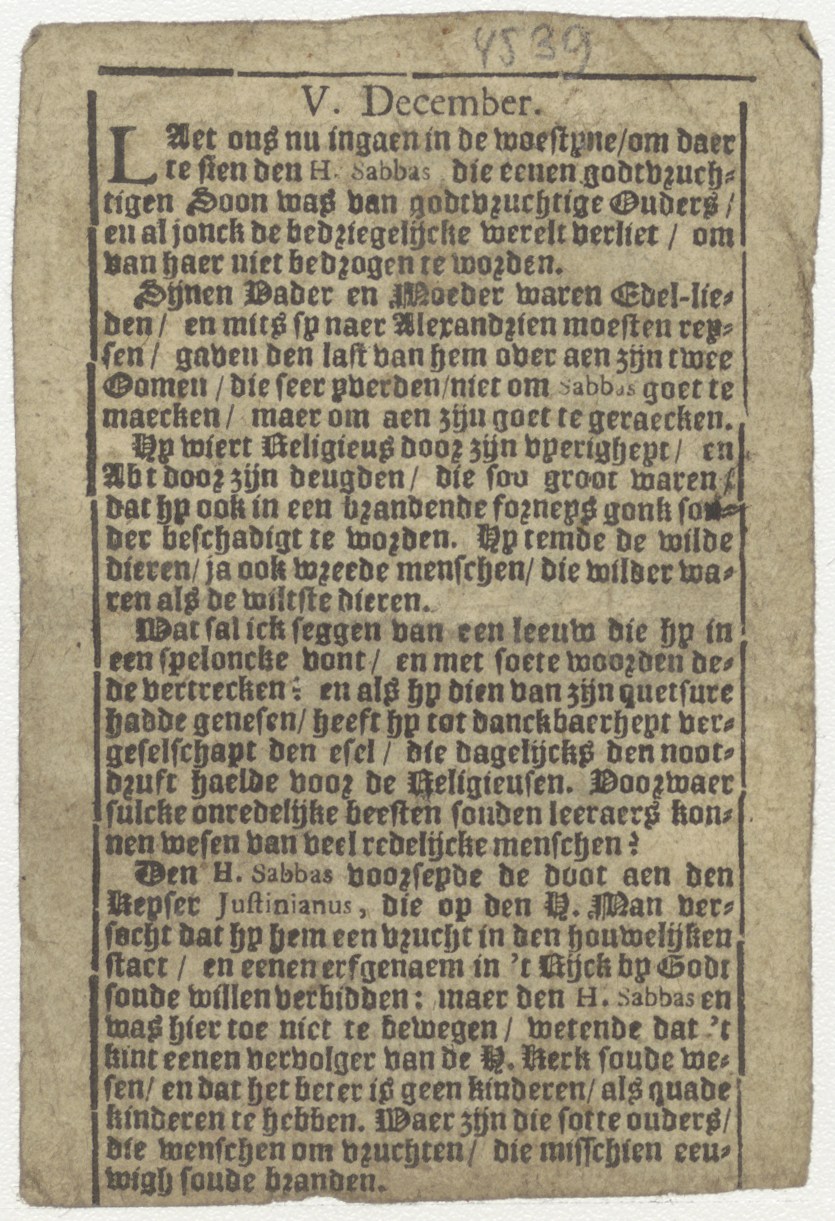 4539
V. December.
LAet ons nu ingaen in de woestyne/om daer
te sien den H. Sabbas die eenen godtvruch-
tigen Soon was van godtvruchtige Ouders/
en al jonck de bedriegelijcke werelt verliet / om
van haer niet bedrogen te worden.
Sijnen Vader en Moeder waren Edel-lie-
den/ en mits sy naer Alexandrien moesten rey-
sen/ gaven den last van hem over aen zijn twee
Oomen /die seer yverden/niet om Sabbas goet te
maecken/ maer om aen zijn goet te geraecken.
Hy wiert Religieus door zijn vyerigheyt/ en
Abt door zijn deugden/ die soo groot waren/
dat hy ook in een brandende forneys gonk son-
der beschadigt te worden. Hy temde de wilde
dieren/ ja ook wreede menschen/ die wilder wa-
ren als de wiltste dieren.
Wat sal ick seggen van een leeuw die hy in
een speloncke vont/ en met soete woorden de-
de vertrecken? en als hy dien van zijn quetsure
hadde genesen/ heeft hy tot danckbaerheyt ver-
geselschapt den esel/ die dagelijcks den noot-
druft haelde voor de Religieusen. Voorwaer
sulcke onredelijke beesten souden leeraers kon-
nen wesen van veel redelijcke menschen?
Den H. Sabbas voorseyde de doot aen den
Keyser Justinianus, die op den H. Man ver-
socht dat hy hem een vrucht in den houwelijken
staet / en eenen erfgenaem in 't Rijck by Godt
soude willen verbidden: maer den H. Sabbas en
was hier toe niet te bewegen/ wetende dat 't
kint eenen vervolger van de H. Kerk soude we-
sen/ en dat het beter is geen kinderen/ als quade
kinderen te hebben. Waer zijn die sotte ouders/
die wenschen om vruchten/ die misschien eeu-
wigh soude branden.